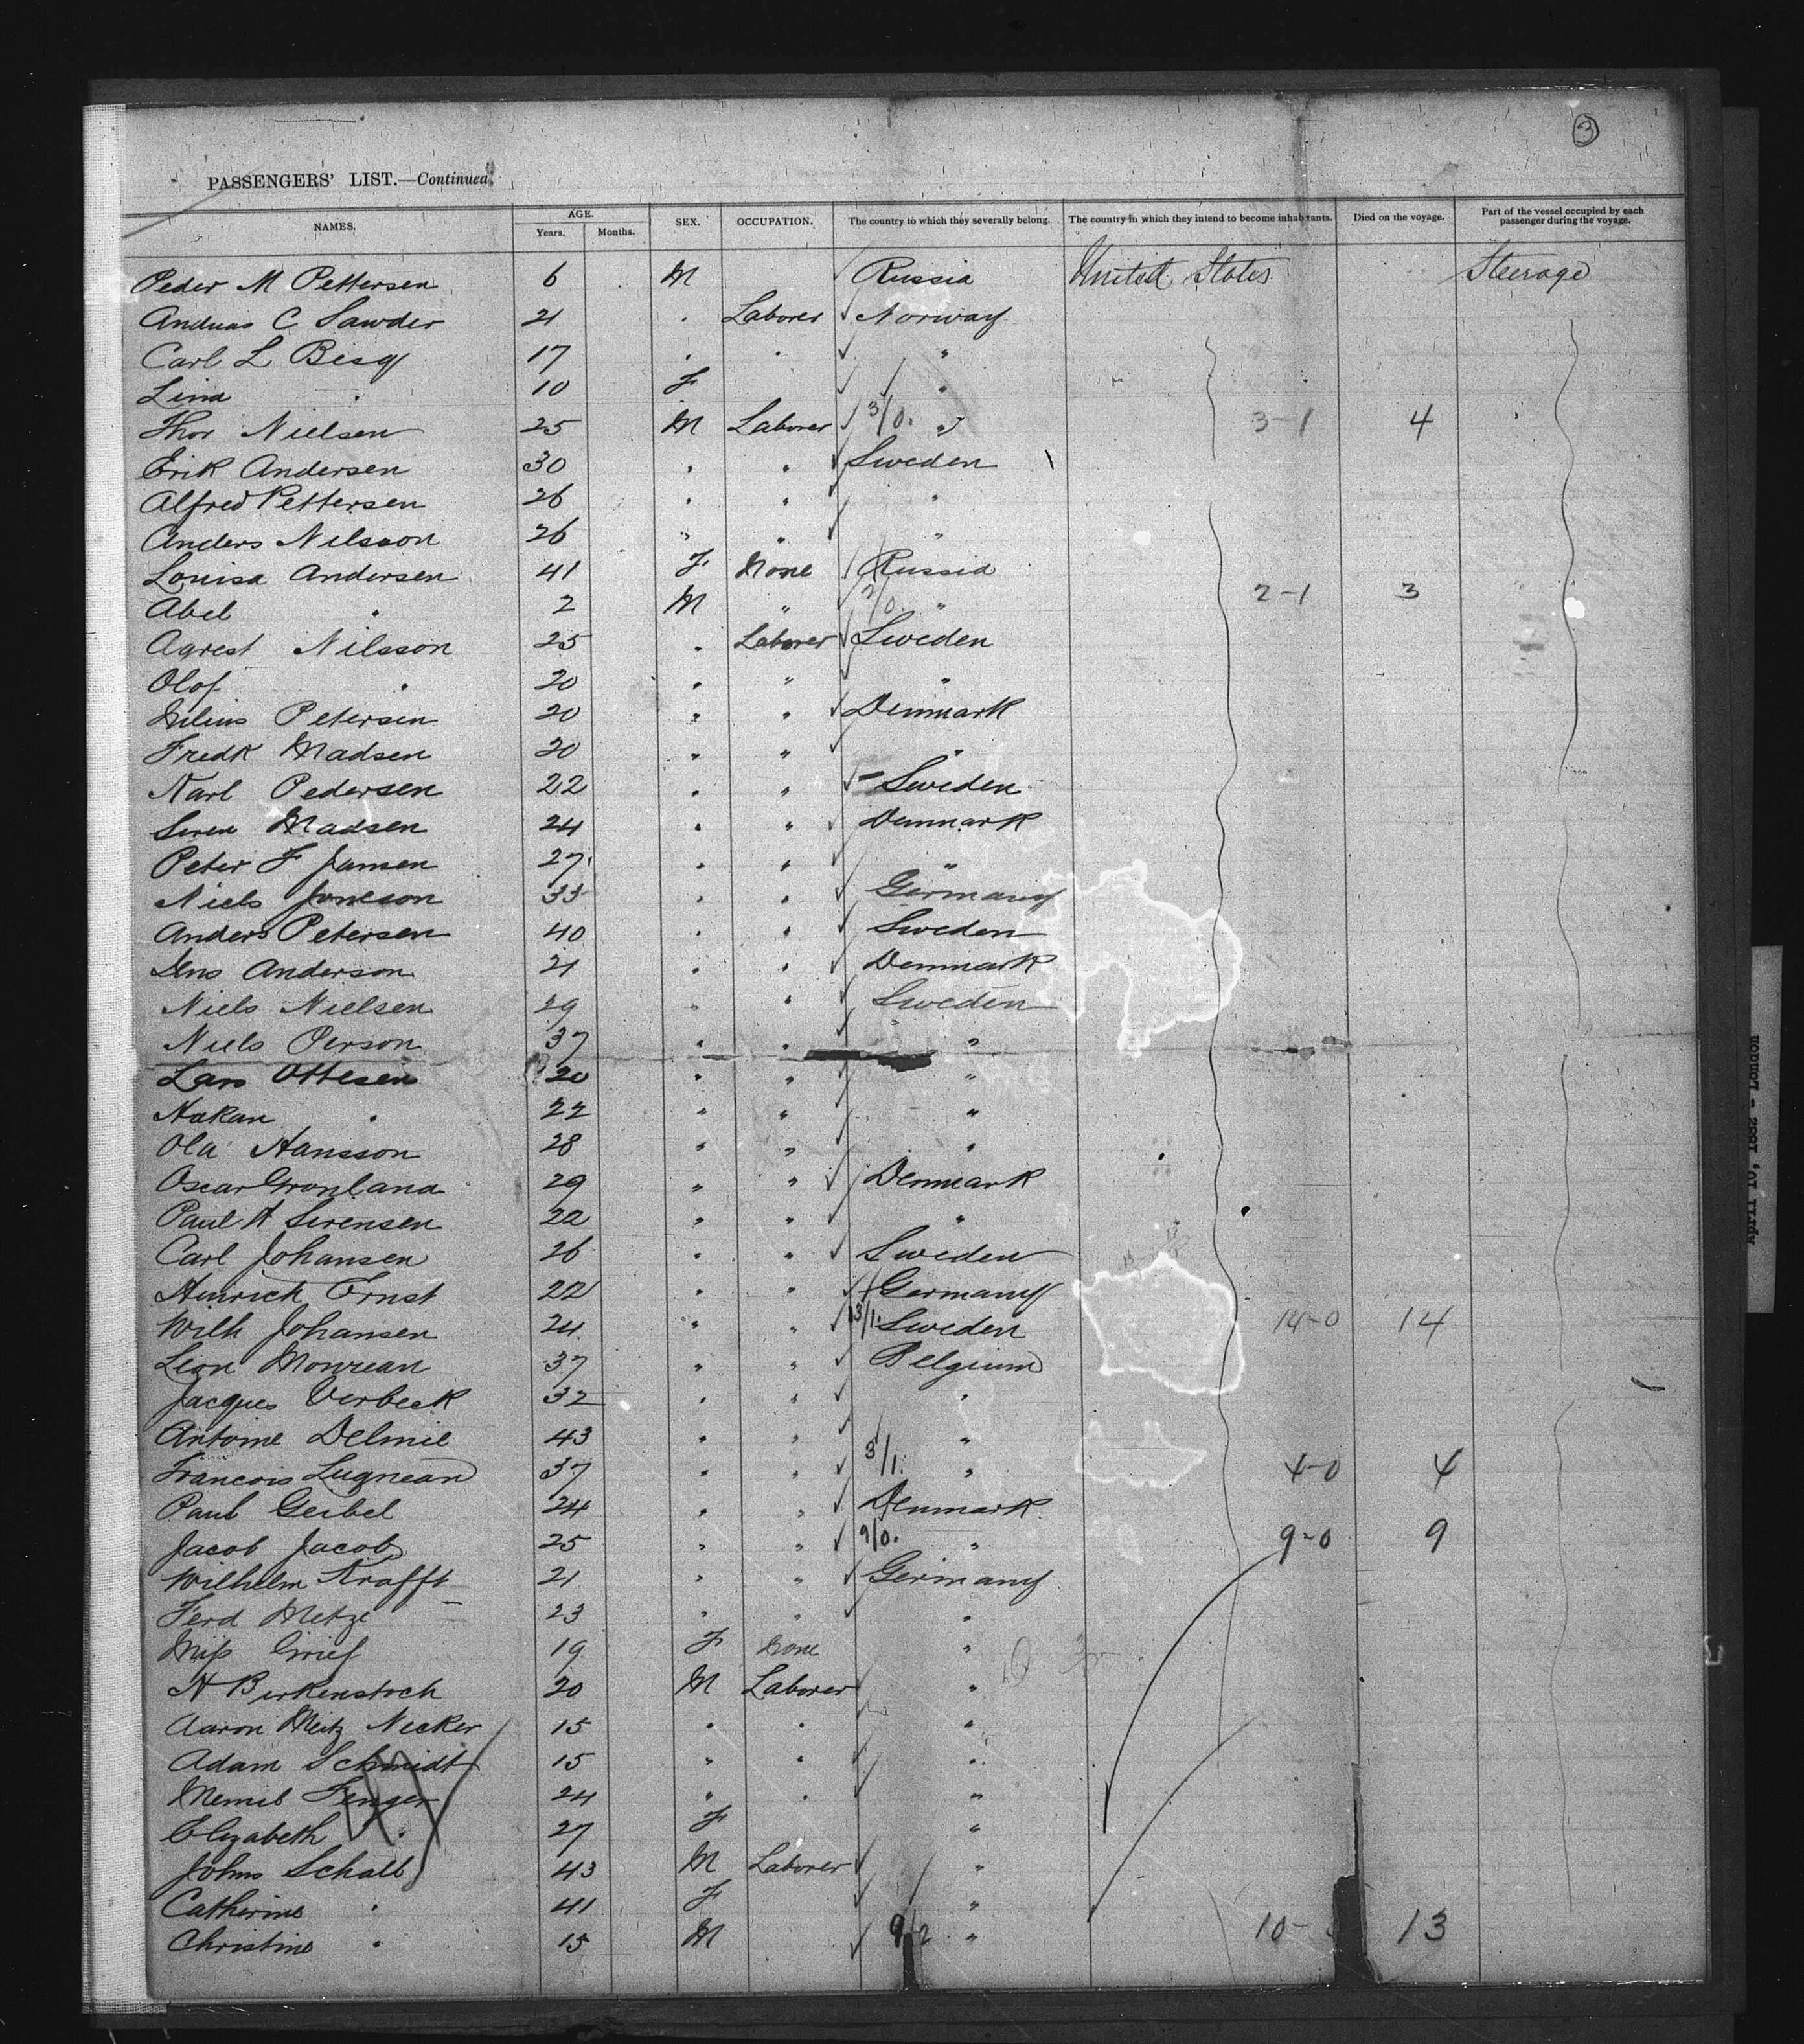 3
PASSENGERS' LIST.—Continued.
NAMES. AGE. Years. Months. SEX. OCCUPATION. The country to which they severally belong. The country in which they intend to become inhabitants. Died on the voyage. Part of the vessel occupied by each passenger during the voyage.
Peder M Pettersen 6 M Russia United States Steerage
Andreas C Sawder 21 " Laborer Norway
Carl L Bisg 17 " " "
Lina " 10 F "
Thor Nielsen 25 M Laborer 3/0. " 3-1 4
Erik Andersen 30 " " Sweden
Alfred Pettersen 26 " " "
Anders Nilsson 26 " " "
Louisa Andersen 41 F None Russia
Abel " 2 M " 2/0. " 2-1 3
Agrest Nilsson 25 " Laborer Sweden
Olof " 20 " " "
Julius Petersen 20 " " Denmark
Fredk Madsen 20 " " "
Karl Pedersen 22 " " Sweden
Soren Madsen 24 " " Denmark
Peter F Jansen 27 " " "
Niels Joneson 33 " " Germany
Anders Petersen 40 " " Sweden
Jens Anderson 21 " " Denmark
Niels Nielsen 29 " " Sweden
Niels Person 37 " " "
Lars Ottesen 20 " " "
Hakan " 22 " " "
Ola Hansson 28 " " "
Oscar Gronland 29 " " Denmark
Paul A Sorensen 22 " " "
Carl Johansen 26 " " Sweden
Heinrich Ernst 22 " " Germany
Wilh Johansen 24 " " 13/1. Sweden 14-0 14
Leon Mourean 37 " " Belgium
Jacques Verbeck 32 " " "
Antoine Delmie 43 " " "
Francois Lugnean 37 " " 3/1. " 4-0 4
Paul Geibel 24 " " Denmark
Jacob Jacobs 25 " " 9/0. " 9-0 9
Wilhelm Krafft 21 " " Germany
Ferd Metze 23 " " "
Miss Grief 19 F None "
H Birkenstock 20 M Laborer "
Aaron Meitz Necker 15 " " "
Adam Schmidt 15 " " "
Fenger 24 " " "
Elizabeth " 27 F "
Johns Schalb 43 M Laborer "
Catherine " 41 F "
Christine " 15 M 9/2 " 10- 13
April 10, 1882 - London